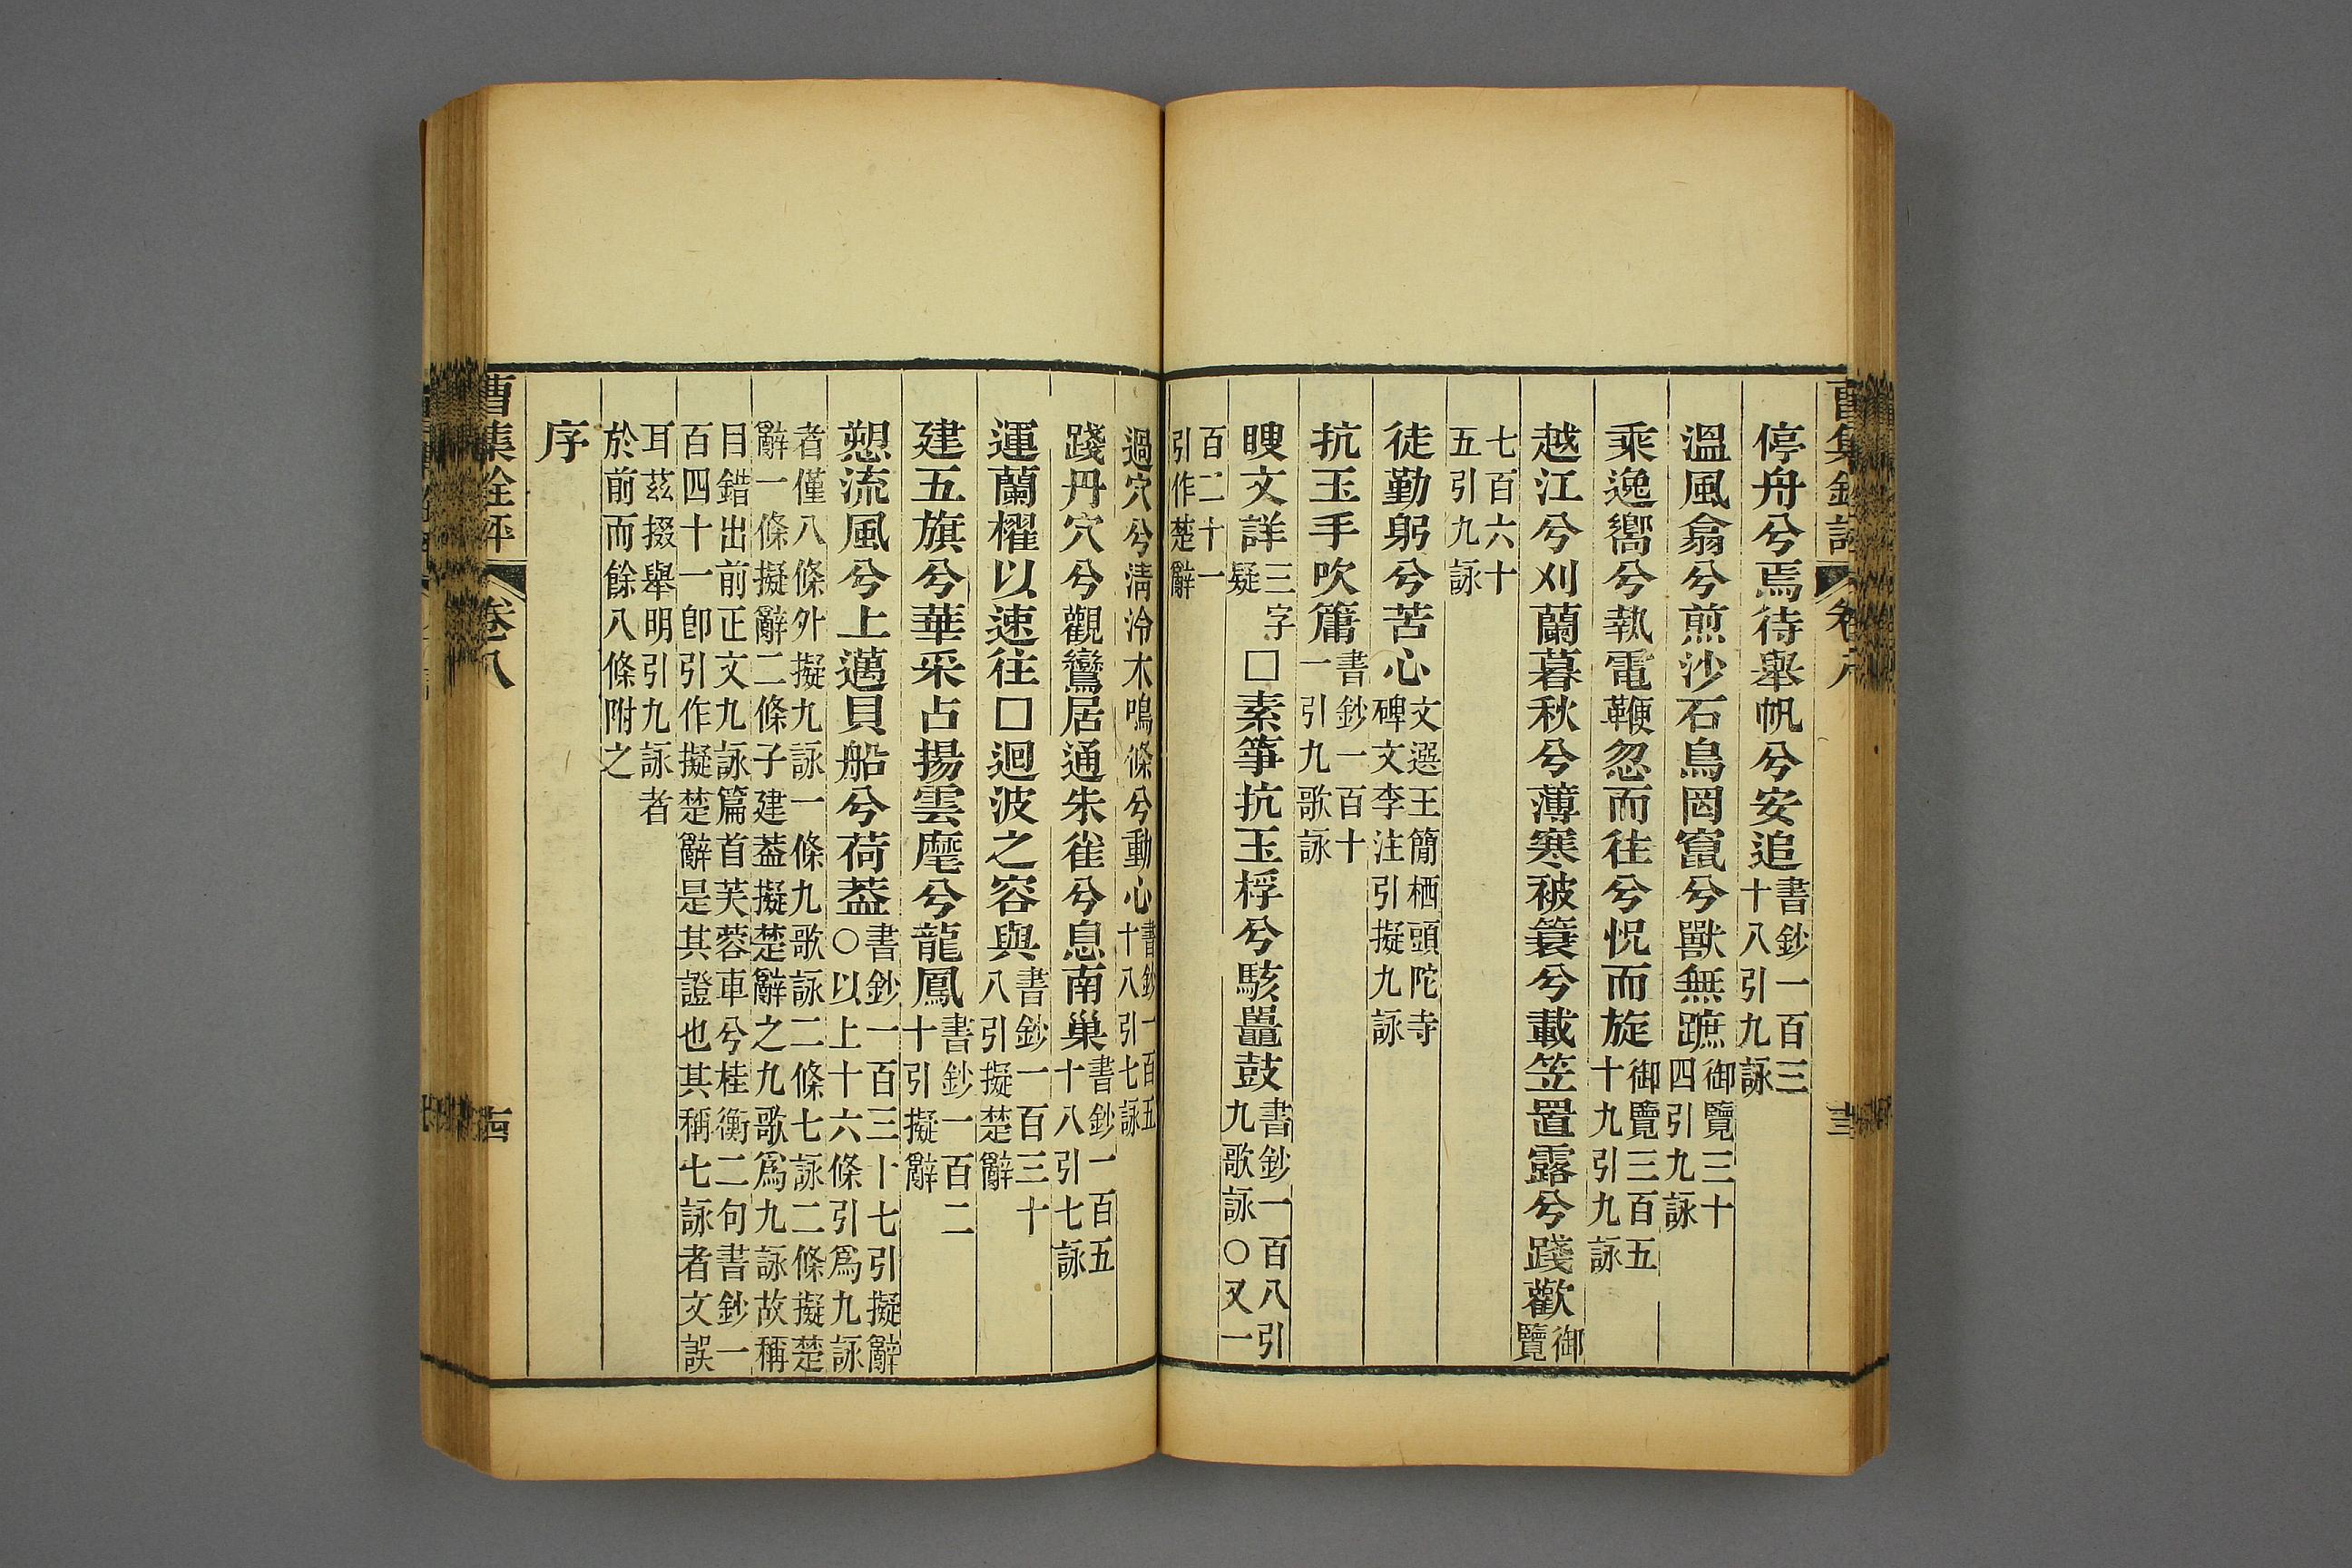 停舟兮焉待舉帆兮安追書鈔一百三十八引九詠
溫風翕兮煎沙石鳥罔竄兮獸無蹠御覽三十四引九詠
乘逸嚮兮執電鞭忽而往兮怳而旋御覽三百五十九引九詠
越江兮刈蘭暮秋兮薄寒被簑兮載笠置露兮踐歡御覽
七百六十五引九詠
徒勤躬兮苦心文選王簡栖頭陀寺碑文李注引擬九詠
抗玉手吹簫書鈔一百十一引九歌詠
瞍文詳三字疑□素箏抗玉桴兮駭鼉鼓書鈔一百八引九歌詠○又一
百二十一引作楚辭
過穴兮清泠木鳴條兮動心書鈔一百五十八引七詠
踐丹穴兮觀鸞居通朱雀兮息南巢書鈔一百五十八引七詠
運蘭櫂以速往□迴波之容與書鈔一百三十八引擬楚辭
建五旗兮華采占揚雲麾兮龍鳳書鈔一百二十引擬辭
愬流風兮上邁貝船兮荷葢書鈔一百三十七引擬辭○以上十六條引爲九詠
者僅八條外擬九詠一條九歌詠二條七詠二條擬楚辭一條擬辭二條子建葢擬楚辭之九歌爲九詠故稱
曰錯出前正文九詠篇首芙蓉車兮桂衡二句書鈔一百四十一卽引作擬楚辭是其證也其稱七詠者文誤
耳茲掇舉明引九詠者於前而餘八條附之
序
曹集銓評
卷八
十四